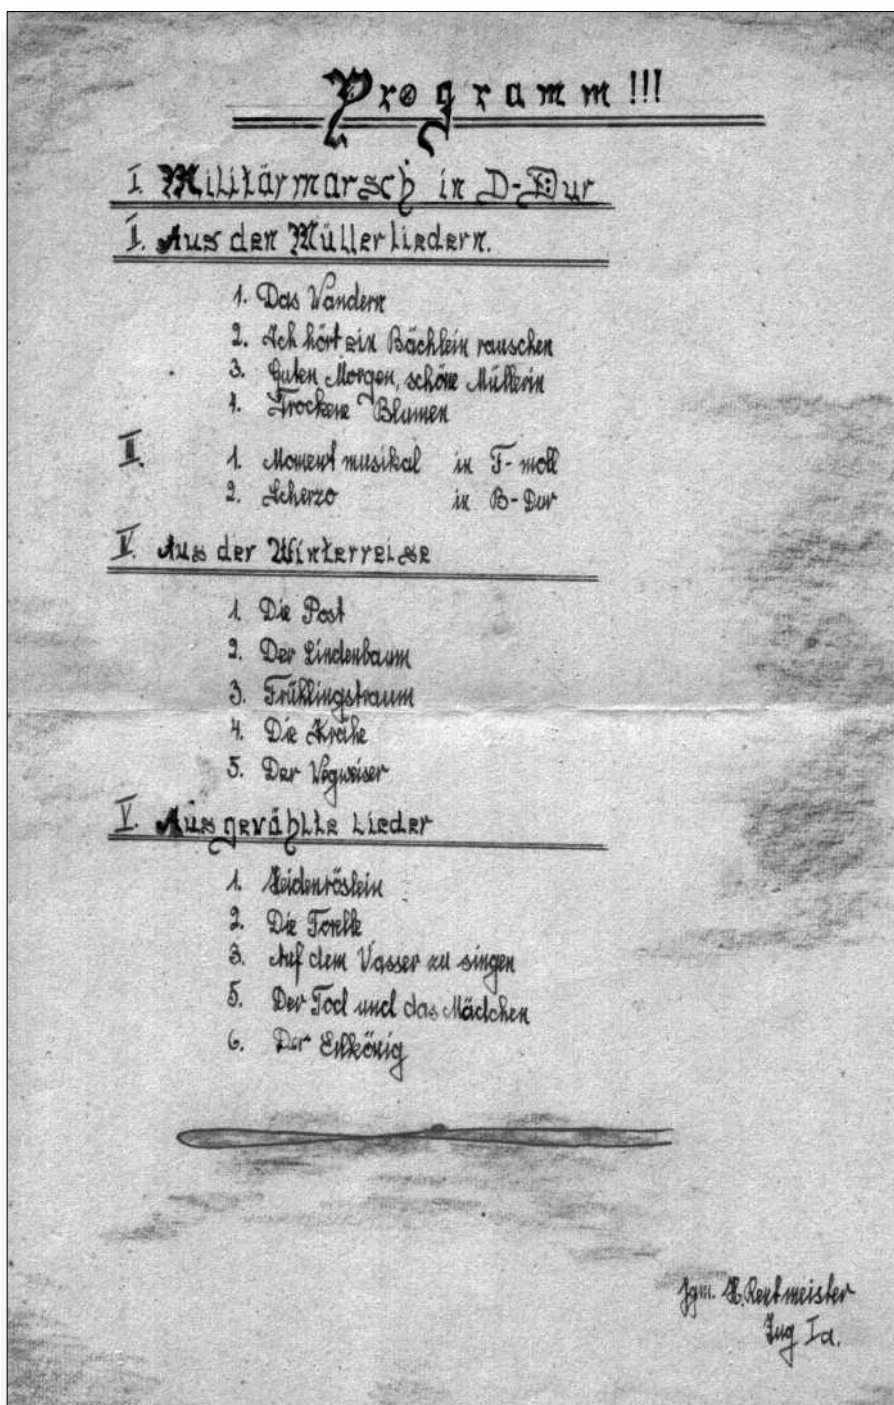 Programm!!!
I. Militärmarsch in D-Dur
II. Aus den Müllerliedern.
1. Das Wandern
2. Ich hört ein Bächlein rauschen
3. Guten Morgen, schöne Müllerin
4. Trockene Blumen
III. 1. Moment musikal in F-moll
2. Scherzo in B-Dur
IV. Aus der Winterreise
1. Die Post
2. Der Lindenbaum
3. Frühlingstraum
4. Die Krähe
5. Der Wegweiser
V. Ausgewählte Lieder
1. Heidenröslein
2. Die Forelle
3. Auf dem Wasser zu singen
5. Der Tod und das Mädchen
6. Der Erlkönig
Jgm. H. Rentmeister
Zug Ia.